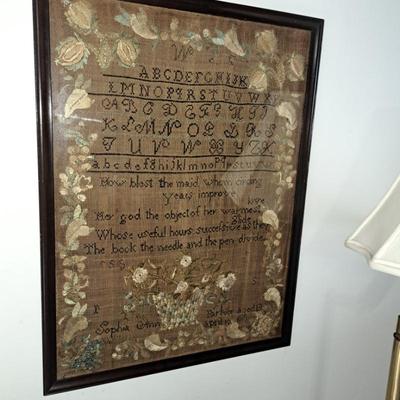 A B C D E F G H I J K
L M N O P Q R S T U V W X Y
A B C D E F G H I J
K L M N O P Q R S
T U V W X Y Z
a b c d e f g h i j k l m n o p q r s t u v w
How blest the maid whom circling
years improve
Her god the object of her warmest
love
Whose useful hours successive as they
glide
The book the needle and the pen divide
Sophia Ann Parker aged 13
April